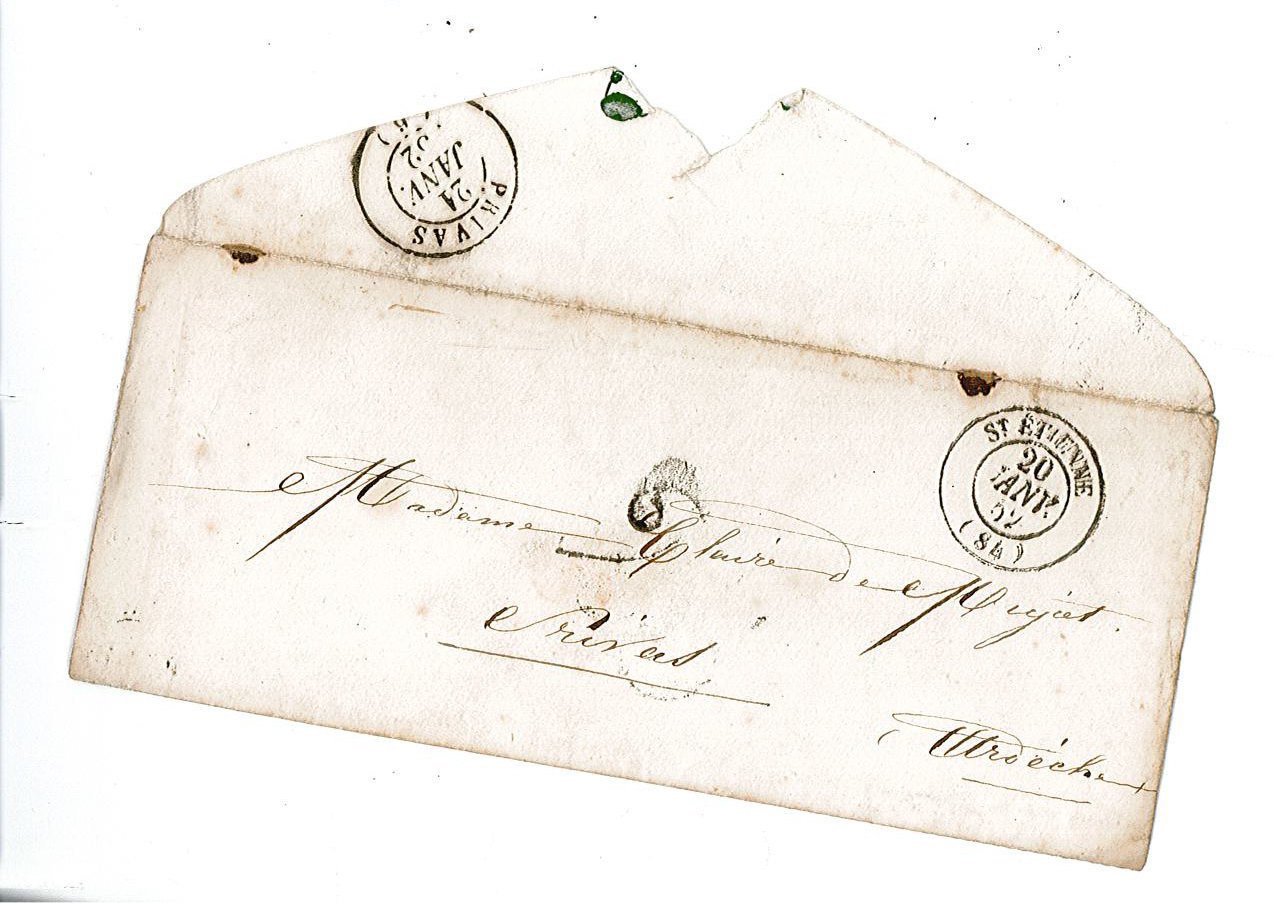 PRIVAS
21
JANV.
52
ST ÉTIENNE
20
JANV.
52
(84)
Madame Claire de Mujet.
Privas
Ardèche